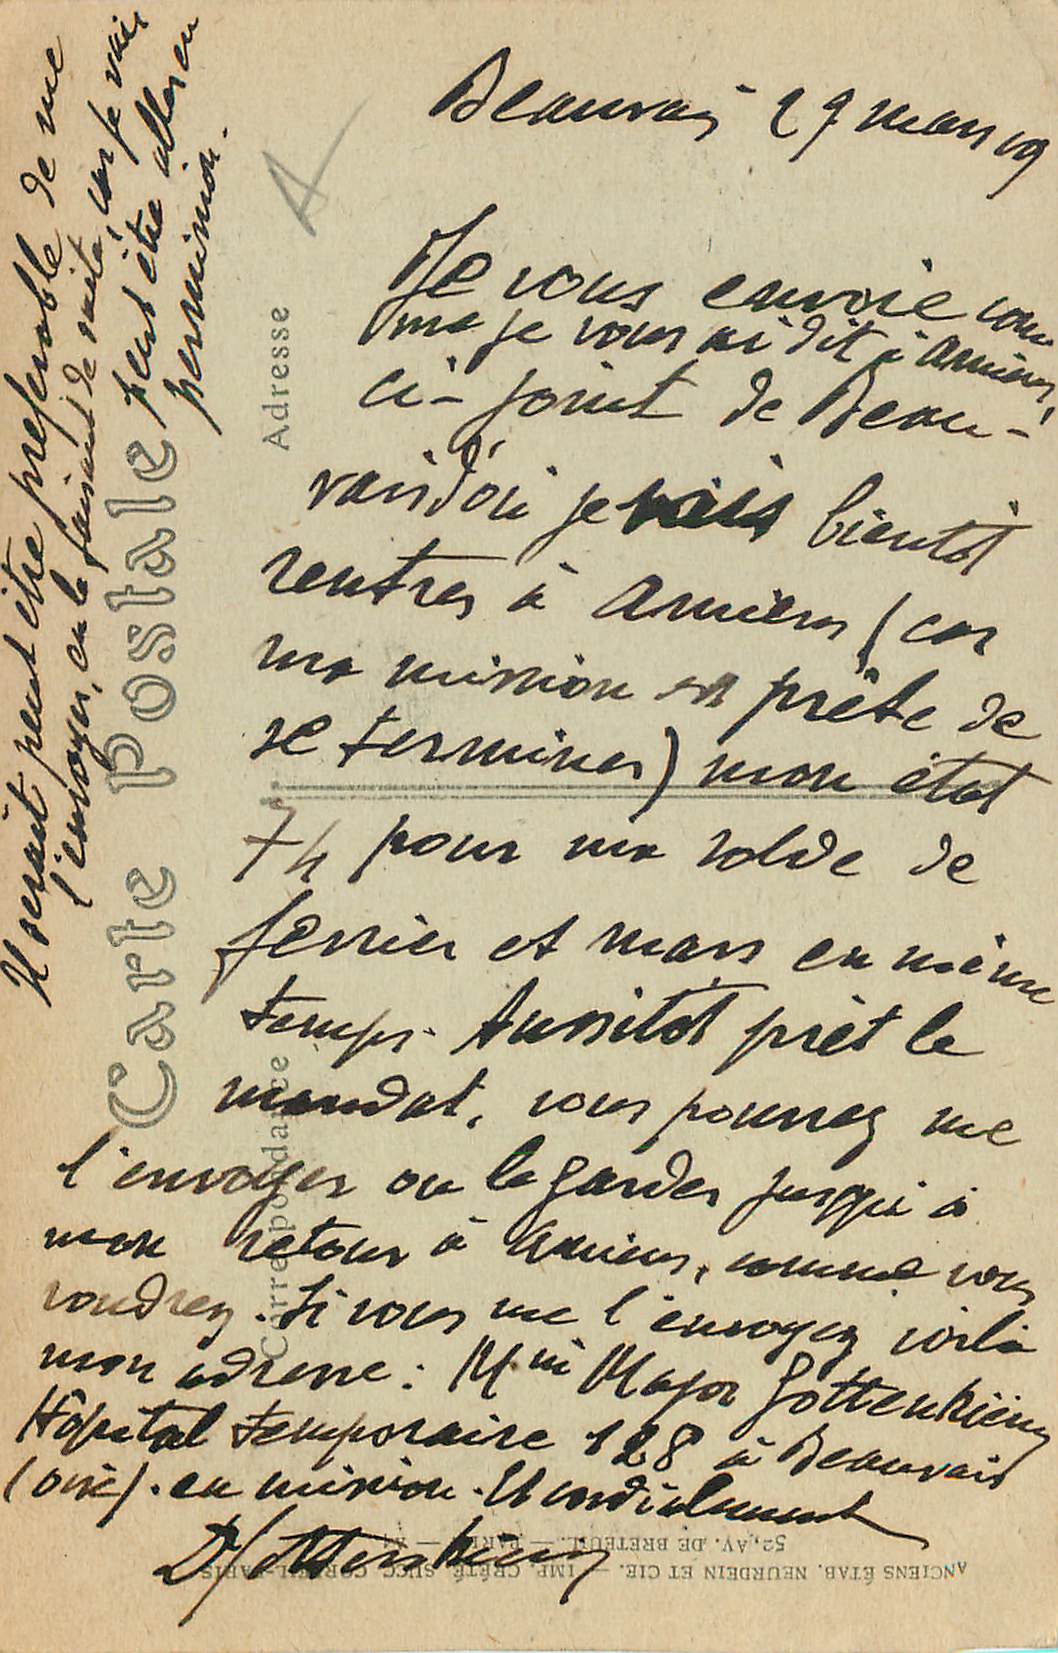 Beauvais 29 mars 19
Je vous envoie com
me je vous ai dit à Amiens,
ci-joint de Beau-
vais d'où je vais bientôt
rentrer à Amiens (car
ma mission est prête de
se terminer) mon état
74 pour ma solde de
fevrier et mars en même
temps. Aussitôt prêt le
mandat, vous pourrez me
l'envoyer ou le garder jusqu'à
mon retour à Amiens, comme vous
voudrez. Si vous me l'envoyez voilà
mon adresse : Major
Hôpital temporaire 128 à Beauvais
(oise). en mission. Et cordialement
Il serait peut être preferable de me
l'envoyer, en le faisant de suite, car je vais
peut être aller en
permission.
Carte Postale
Adresse
Correspondance
ANCIENS ÉTAB. NEURDEIN ET CIE. — IMP. CRÉTÉ, SUCC. CORBEIL-PARIS
52, AV. DE BRETEUIL. — PARIS —